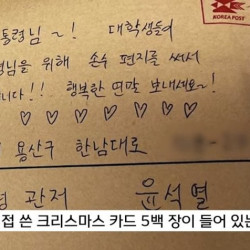 KOREA POST
통령님~! 대학생들이
령님을 위해 손수 편지를 써서
니다!! 행복한 연말 보내세요~!
♡ ♡ ♡ ♡ ♡ ♡ ♡
용산구 한남대로
령 관저 윤석열
접 쓴 크리스마스 카드 5백 장이 들어 있는